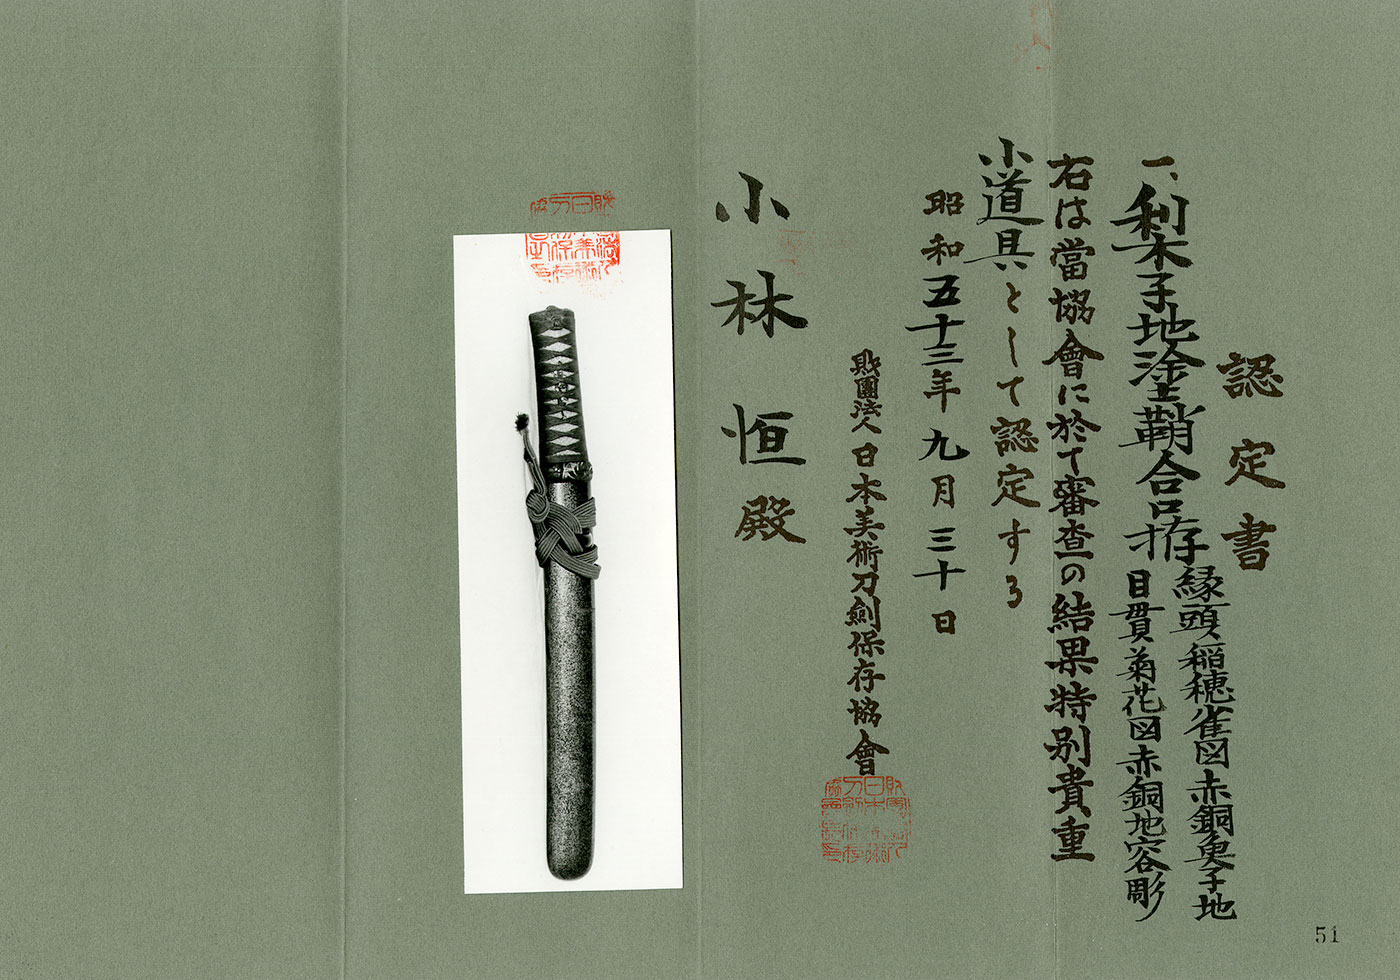 認定書
一、梨子地塗鞘合口拵
縁頭稲穂雀図赤銅魚子地
目貫菊花図赤銅地容彫
右は當協會に於て審査の結果特別貴重
小道具として認定する
昭和五十三年九月三十日
財團法人日本美術刀劍保存協會
小林恒殿
51